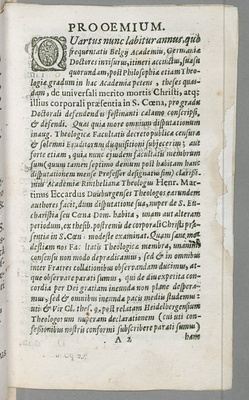 PROOEMIUM.
QVartus nunc labitur annus, quo
frequentatis Belgij Academiis, Germaniæ
Doctores invisurus, itineri accinctus, suasu
quorundam, post Philosophiæ etiam Theo-
logiæ gradum in hac Academia petens, theses quas-
dam, de universali merito mortis Christi, atq;
illius corporali præsentia in S. Cœna, pro gradu
Doctorali defendendas festinanti calamo conscripsi,
& defendi. Quas quia more omnium disputationum
inaug. Theologicæ Facultatis decreto publicæ censuræ
& solemni Eruditorum disquisitioni subjeceram; aut
forte etiam, quia nunc ejusdem facultatis membrum
sum (quum tamen septimo demum post habitam hanc
disputationem mense Professor designatus sim) clarissi-
mus Academiæ Rinthelianæ Theologus Henr. Mar-
tinus Eccardus Duisburgenses Theologos earundem
authores facit, dum disputatione sua, nuper de S. Eu-
charistia seu Cœna Dom. habita, unam aut alteram
periodum, ex thesib. postremis de corporali Christi præ-
sentia in S. Cœn. modeste examinat. Quam sane mo-
destiam nos Facultatis Theologicæ membra, unanimi
consensu non modo depradicamus, sed & in omnibus
inter Fratres collationibus observandam ducimus, at-
que observare parati sumus, qui de diu expetita con-
cordia per Dei gratiam ineunda non plane despera-
mus, sed & omnibus ineunda pacis mediis studemus:
uti & Vir Cl. thes. 9. post relatam Heidelbergensium
Theologorum nuperam declarationem (cui uti con-
fessionibus nostris conformi subscribere parati sumus)
A 2
hanc